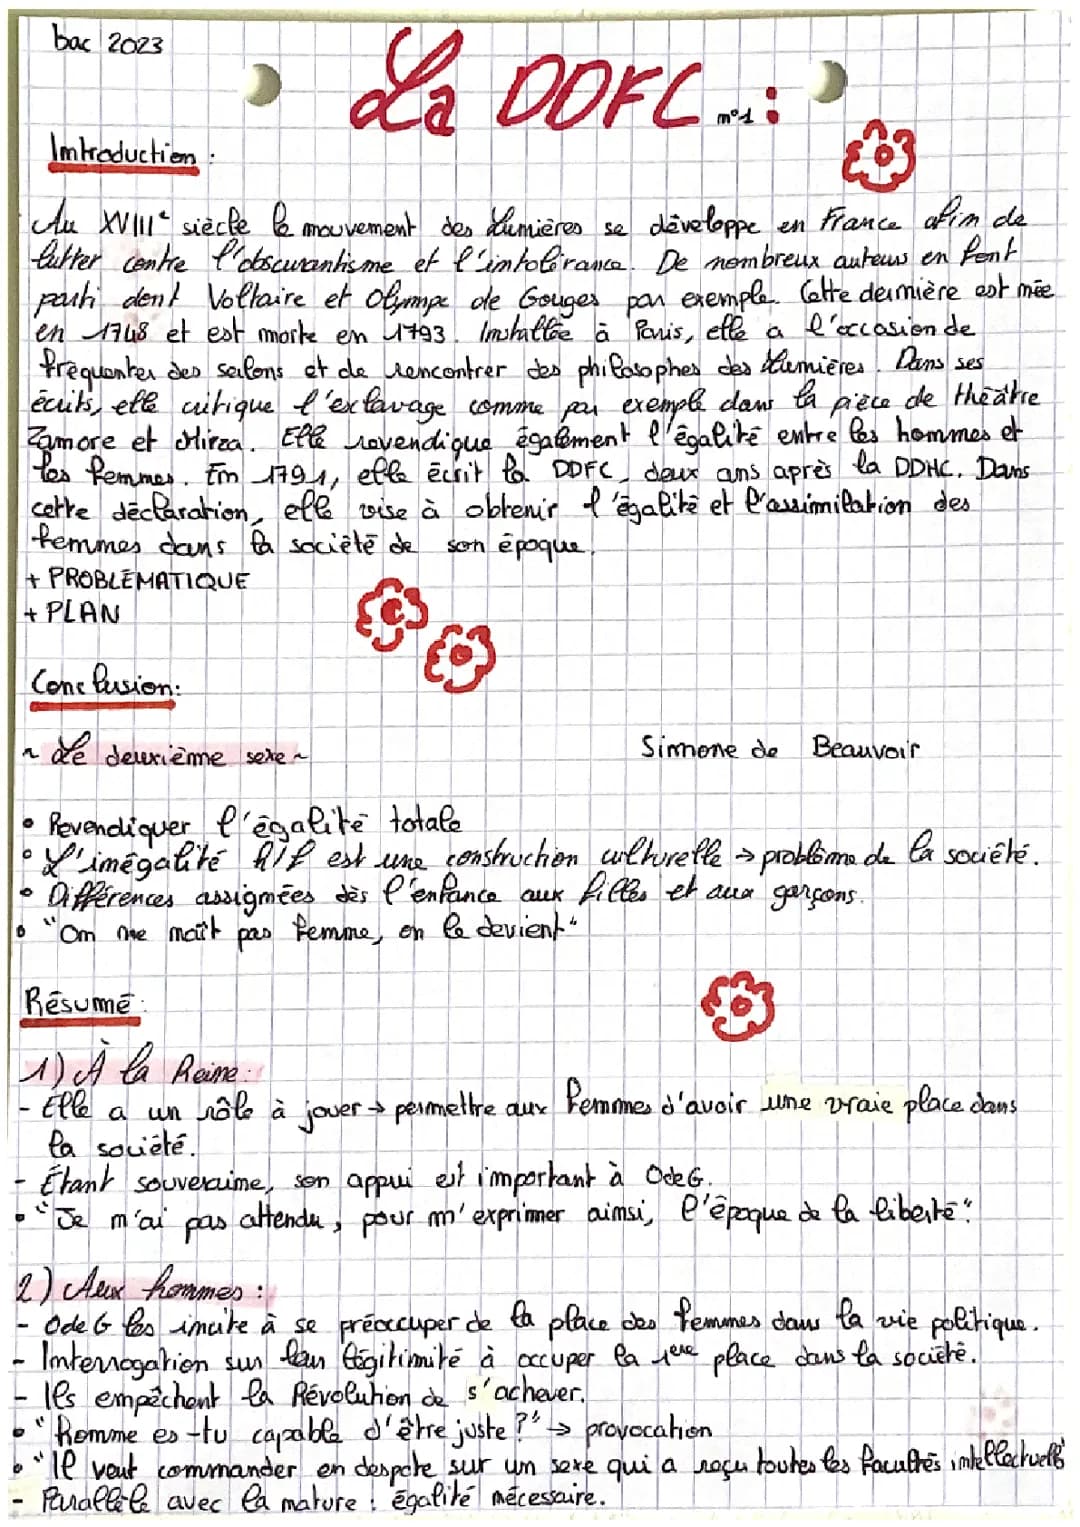 bac 2023
La DDFC n°1 :
Introduction :
Au XVIIIe siècle le mouvement des Lumières se développe en France afin de
lutter contre l'obscurantisme et l'intolérance. De nombreux auteurs en font
parti dont Voltaire et Olympe de Gouges par exemple. Cette dernière est née
en 1748 et est morte en 1793. Installée à Paris, elle a l'occasion de
fréquenter des salons et de rencontrer des philosophes des Lumières. Dans ses
écrits, elle critique l'exclavage comme par exemple dans la pièce de théâtre
Zamore et Mirza. Elle revendique également l'égalité entre les hommes et
les femmes. En 1791, elle écrit la DDFC, deux ans après la DDHC. Dans
cette déclaration, elle vise à obtenir l'égalité et l'assimilation des
femmes dans la société de son époque.
+ PROBLÉMATIQUE
+ PLAN
Conclusion :
~ Le deuxième sexe ~ Simone de Beauvoir
• Revendiquer l'égalité totale
• L'inégalité h/f est une construction culturelle → problème de la société.
• Différences assignées dès l'enfance aux filles et aux garçons.
• "On ne naît pas femme, on le devient"
Résumé :
1) À la Reine :
- Elle a un rôle à jouer → permettre aux femmes d'avoir une vraie place dans
la société.
- Étant souveraine, son appui est important à OdeG.
• "Je n'ai pas attendu, pour m'exprimer ainsi, l'époque de la liberté".
2) Aux hommes :
- OdeG les incite à se préoccuper de la place des femmes dans la vie politique.
- Interrogation sur leur légitimité à occuper la 1ère place dans la société.
- Ils empêchent la Révolution de s'achever.
• "Homme es-tu capable d'être juste ?" → provocation
• "Il veut commander en despote sur un sexe qui a reçu toutes les facultés intellectuelles"
- Parallèle avec la nature : égalité nécessaire.